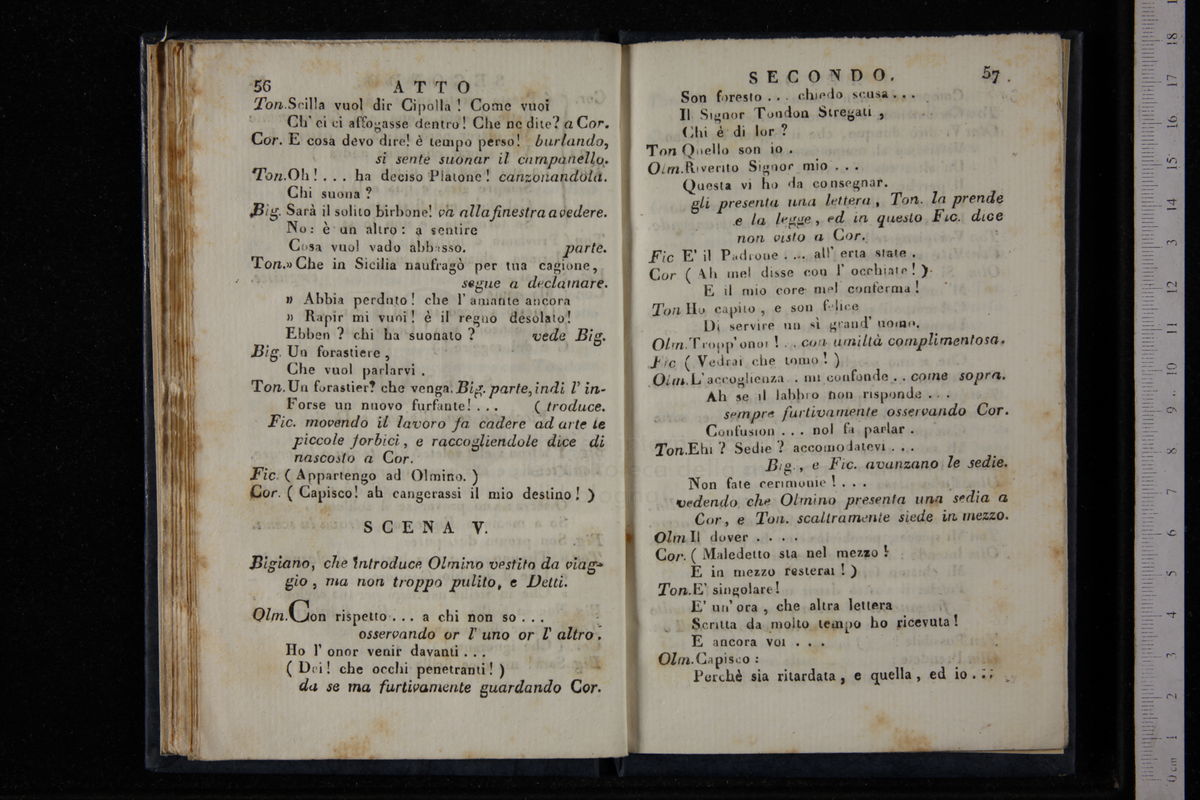 56 ATTO
Ton. Scilla vuol dir Cipolla ! Come vuoi
Ch' ci ci affogasse dentro! Che ne dite? a Cor.
Cor. E cosa devo dire! è tempo perso! burlando,
si sente suonar il campanello.
Ton. Oh ! . . . ha deciso Platone ! canzonandola.
Chi suona ?
Big. Sarà il solito birbone! va alla finestra a vedere.
No : è un altro : a sentire
Cosa vuol vado abbasso. parte.
Ton. » Che in Sicilia naufragò per tua cagione,
segue a declamare.
» Abbia perduto ! che l' amante ancora
» Rapir mi vuoi ! è il regno desolato!
Ebben ? chi ha suonato ? vede Big.
Big. Un forastiere ,
Che vuol parlarvi .
Ton. Un forastier? che venga. Big. parte, indi l' in-
Forse un nuovo furfante! . . . ( troduce.
Fic. movendo il lavoro fa cadere ad arte le
piccole forbici , e raccogliendole dice di
nascosto a Cor.
Fic. ( Appartengo ad Olmino. )
Cor. ( Capisco! ah cangerassi il mio destino ! )
SCENA V.
Bigiano, che introduce Olmino vestito da viag-
gio , ma non troppo pulito, e Detti.
Olm. Con rispetto . . . a chi non so . . .
osservando or l' uno or l' altro .
Ho l' onor venir davanti . . .
( Dei ! che occhi penetranti ! )
da se ma furtivamente guardando Cor.
SECONDO. 57
Son foresto . . . chiedo scusa . . .
Il Signor Tondon Stregati ,
Chi è di lor ?
Ton Quello son io .
Olm. Riverito Signor mio . . .
Questa vi ho da consegnar.
gli presenta una lettera , Ton. la prende
e la legge , ed in questo Fic. dice
non visto a Cor.
Fic E' il Padrone . ... all' erta state .
Cor ( Ah mel disse con l' occhiate ! )
E il mio core mel conferma !
Ton Ho capito , e son felice
Di servire un sì grand' uomo.
Olm. Tropp' onor ! . . con umiltà complimentosa.
Fic ( Vedrai che tomo ! )
Olm. L' accoglienza . . mi confonde . . come sopra.
Ah se il labbro non risponde . . .
sempre furtivamente osservando Cor.
Confusion . . . nol fa parlar .
Ton. Ehi ? Sedie ? accomodatevi . . .
Big. , e Fic. avanzano le sedie.
Non fate cerimonie ! . . .
vedendo che Olmino presenta una sedia a
Cor, e Ton. scaltramente siede in mezzo.
Olm Il dover . . . .
Cor. ( Maledetto sta nel mezzo !
E in mezzo resterai ! )
Ton. E' singolare !
E' un' ora , che altra lettera
Scritta da molto tempo ho ricevuta !
E ancora voi . . .
Olm. Capisco :
Perchè sia ritardata , e quella , ed io . . .